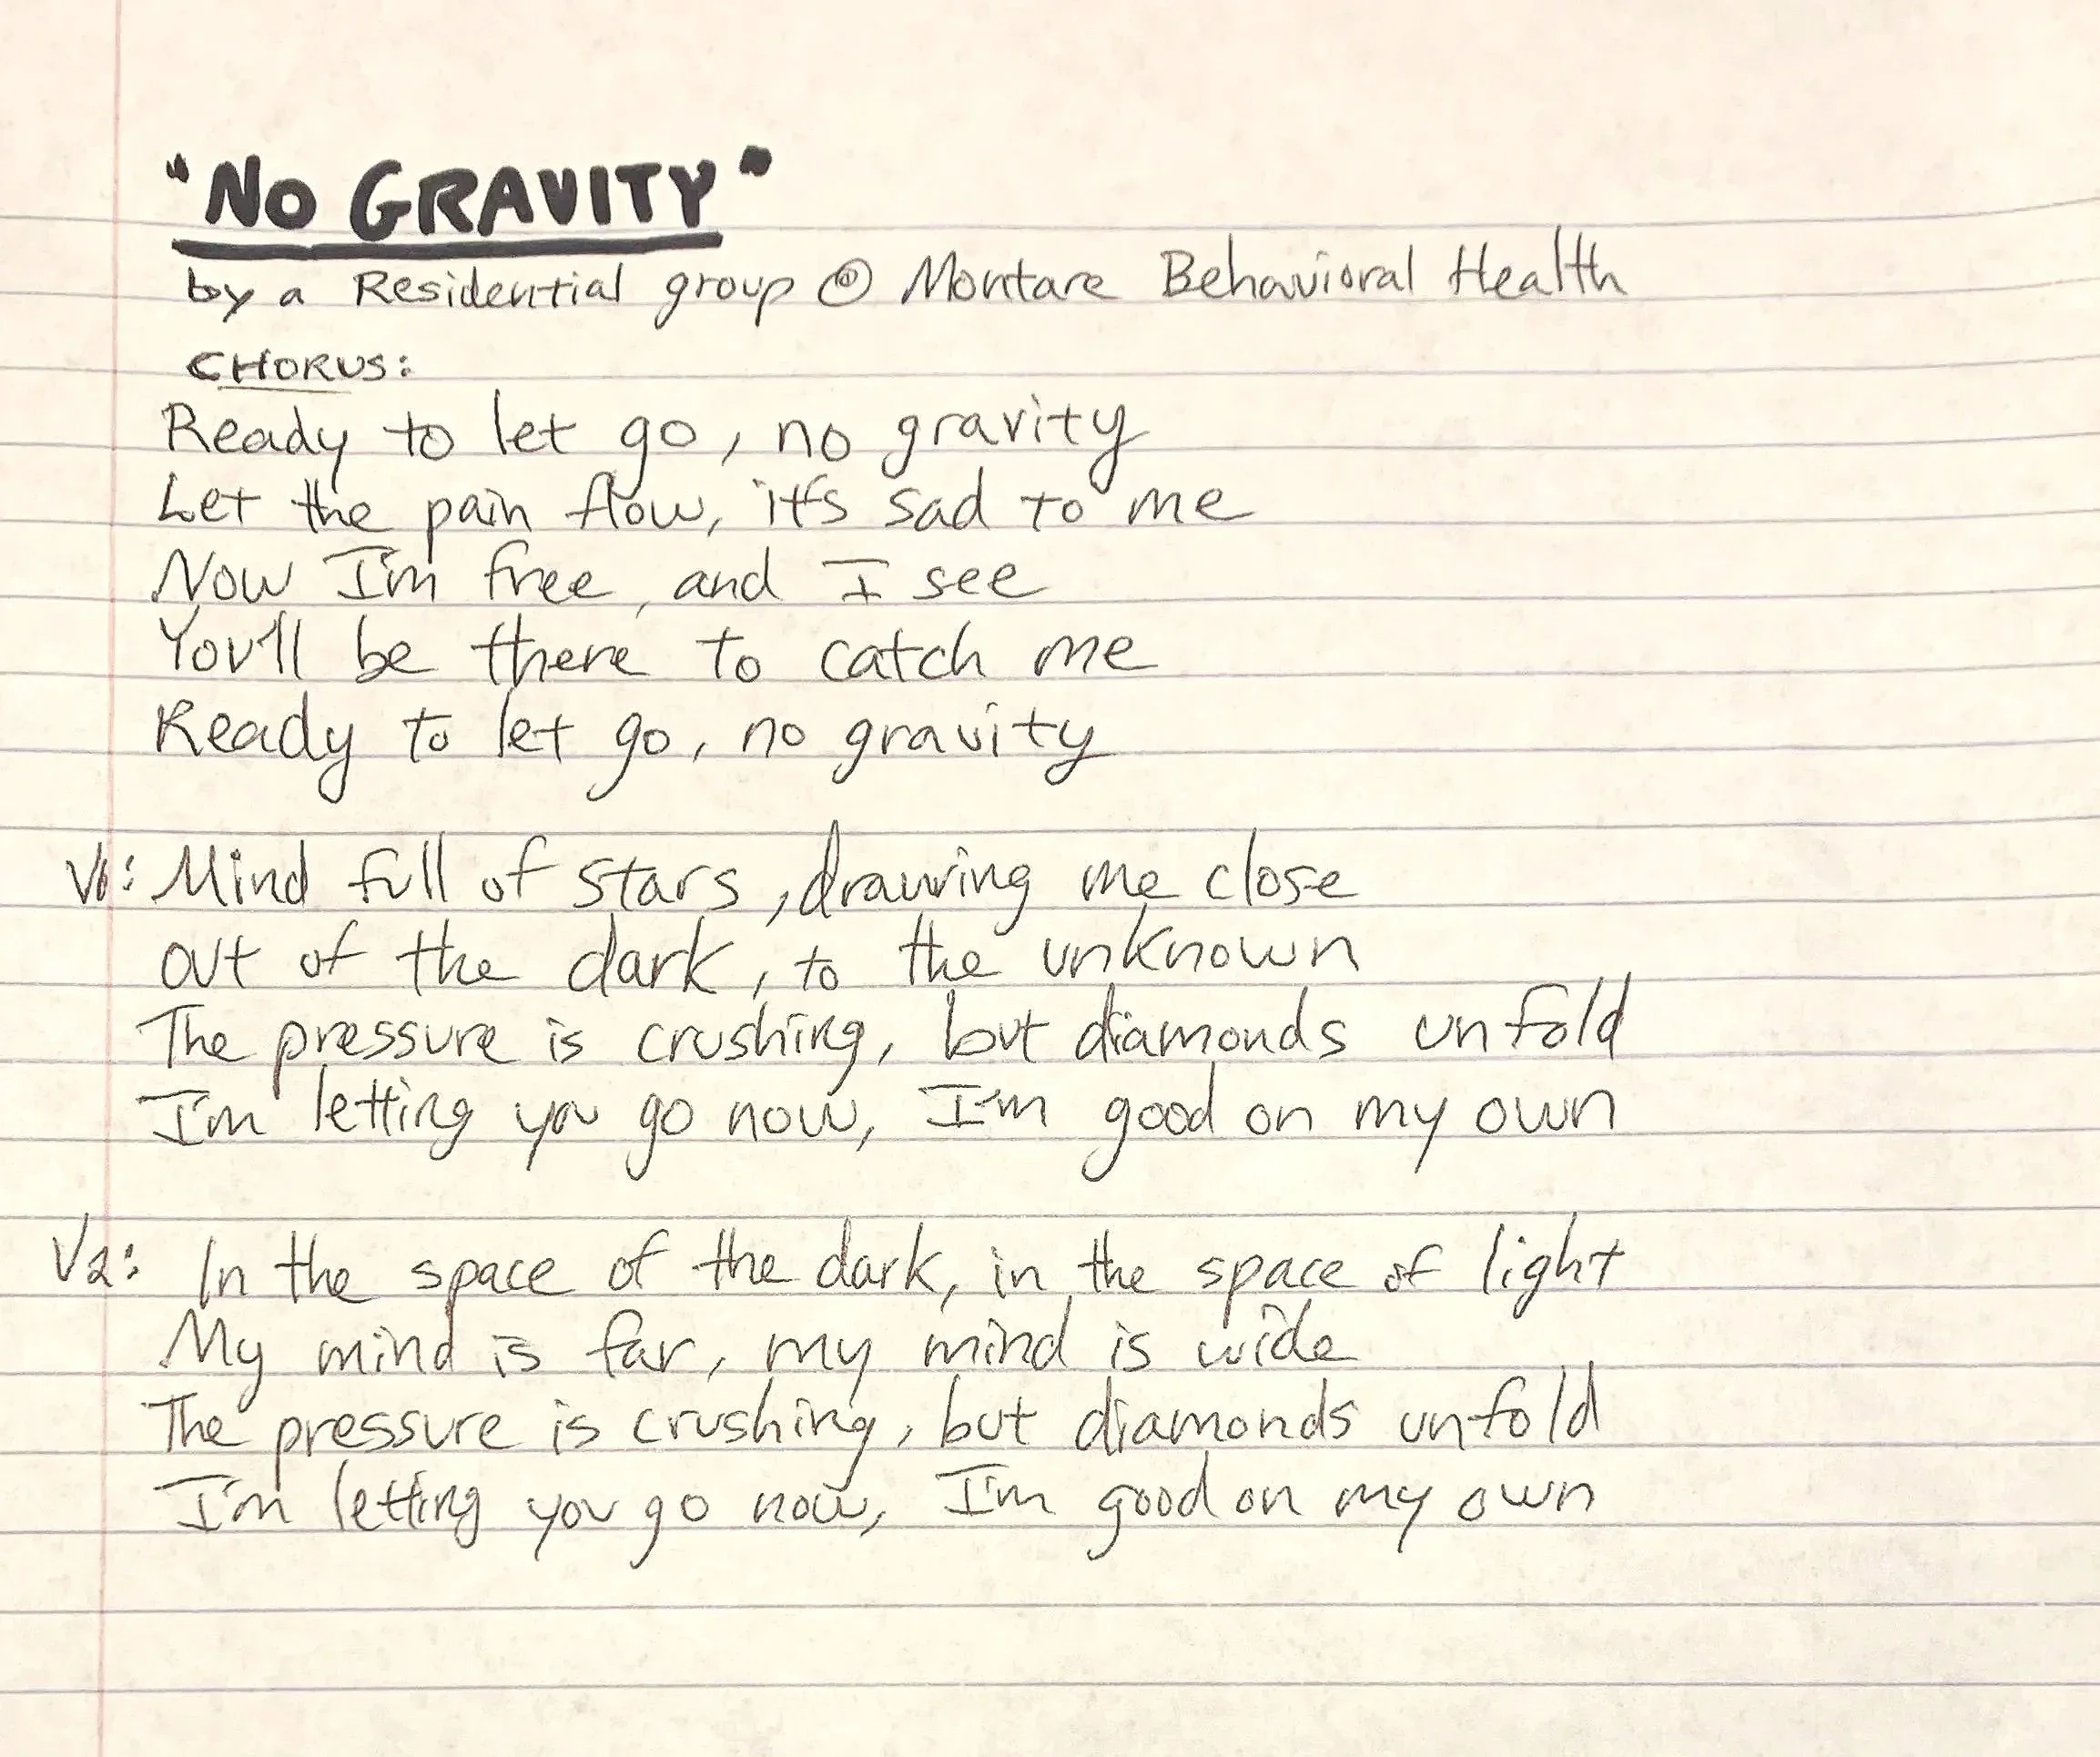 "NO GRAVITY"
by a Residential group @ Montare Behavioral Health
CHORUS:
Ready to let go, no gravity
Let the pain flow, it's sad to me
Now I'm free, and I see
You'll be there to catch me
Ready to let go, no gravity
V1: Mind full of stars, drawing me close
out of the dark, to the unknown
The pressure is crushing, but diamonds unfold
I'm letting you go now, I'm good on my own
V2: In the space of the dark, in the space of light
My mind is far, my mind is wide
The pressure is crushing, but diamonds unfold
I'm letting you go now, I'm good on my own